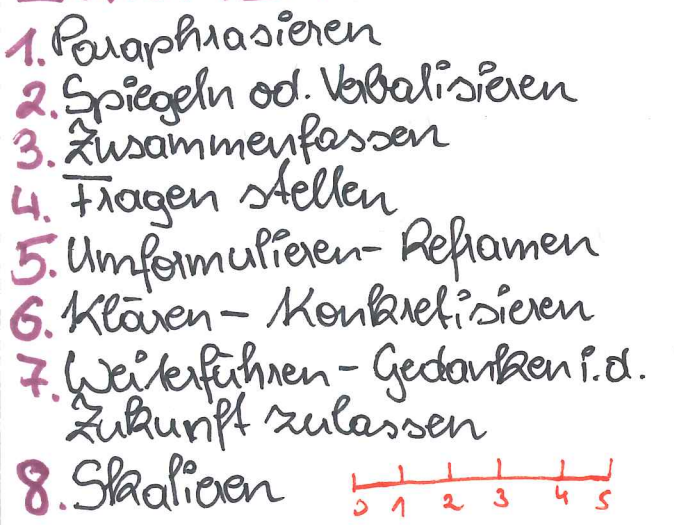 1. Paraphrasieren
2. Spiegeln od. Verbalisieren
3. Zusammenfassen
4. Fragen stellen
5. Umformulieren - Reframen
6. Klären - Konkretisieren
7. Weiterführen - Gedanken i.d.
Zukunft zulassen
8. Skalieren
0 1 2 3 4 5